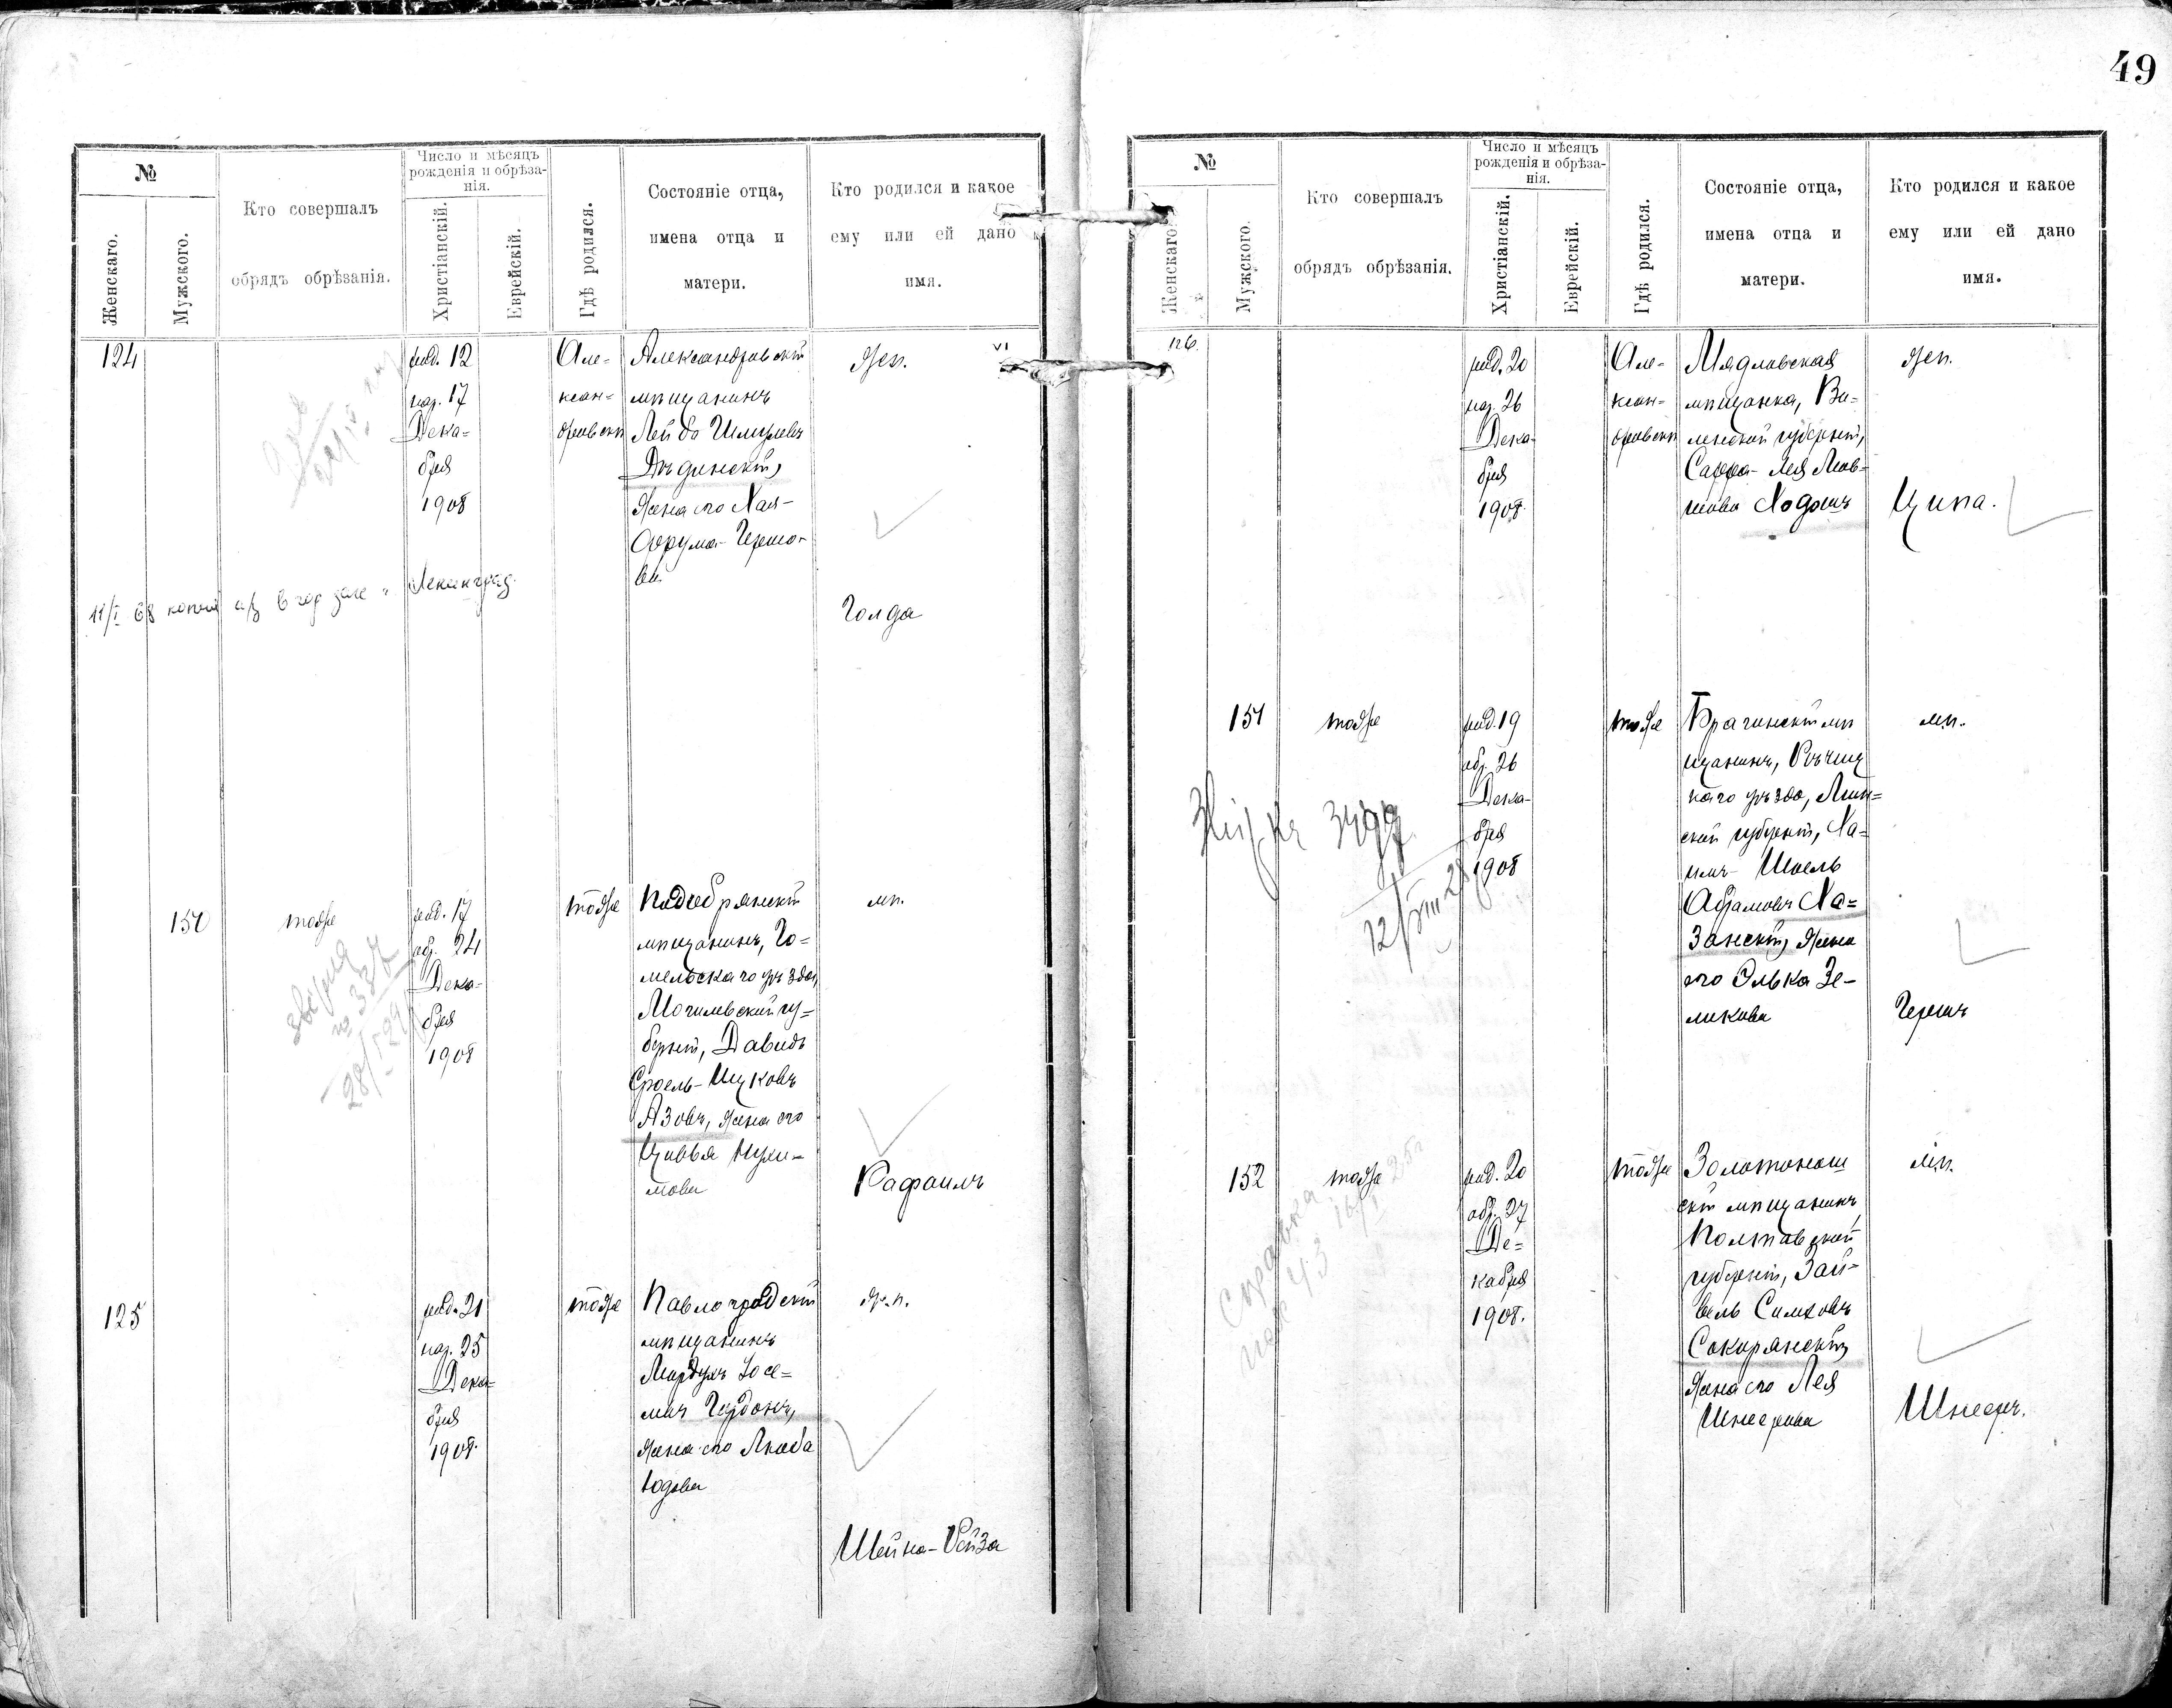 49
№
Женскаго.
Мужского.
Кто совершалъ
обрядъ обрѣзанія.
Число и мѣсяцъ
рожденія и обрѣза-
нія.
Христіанскій.
Еврейскій.
Гдѣ родился.
Состояніе отца,
имена отца и
матери.
Кто родился и какое
ему или ей дано
имя.
124
род. 12
нар. 17
Дека-
бря
1908
Але-
ксан-
дровскѣ
Александровскій
мѣщанинъ
Лейба Шмулевъ
жена его Хая-
Фрума
Жен.
Голда
Ленинград
150
тоже
род. 17
обр. 24
Дека-
бря
1908
тоже
мѣщанинъ, Го-
мельскаго уѣзда,
Могилевской гу-
берніи, Давидъ
Сроель-Ицковъ
Азовъ, жена его
Цивья Нухи-
мова
м.п.
Рафаилъ
125
род. 21
нар. 25
Дека-
бря
1908.
тоже
Павлоградскій
мѣщанинъ
Мордухъ Іосе-
левъ Гордонъ,
жена его Люба
Юдова
ж.п.
Шейна-Рейза
№
Женскаго.
Мужского.
Кто совершалъ
обрядъ обрѣзанія.
Число и мѣсяцъ
рожденія и обрѣза-
нія.
Христіанскій.
Еврейскій.
Гдѣ родился.
Состояніе отца,
имена отца и
матери.
Кто родился и какое
ему или ей дано
имя.
126.
род. 20
нар. 26
Дека-
бря
1908.
Але-
ксан-
дровскѣ
Мядловская
мѣщанка, Ви-
ленской губерніи,
Сарра-Лея Лей-
Ходошъ
Жен.
Ципа.
151
тоже
род. 19
обр. 26
Дека-
бря
1908
тоже
Брагинскій мѣ
щанинъ, Рѣчиц
каго уѣзда, Мин=
ской губерніи, Ха-
имъ-Шоель
Абрамовъ Ха=
занскій, жена
его Элька Зе-
ликова
м.п.
Гершъ
12/VIII 28
152
тоже
род. 20
обр. 27
Де=
кабря
1908.
тоже
Золотонош
скій мѣщанинъ
Полтавской
губерніи, Зай-
вель Симховъ
Сокирянскій,
жена его Лея
Шнеерова
м.п.
Шнееръ.
Справка